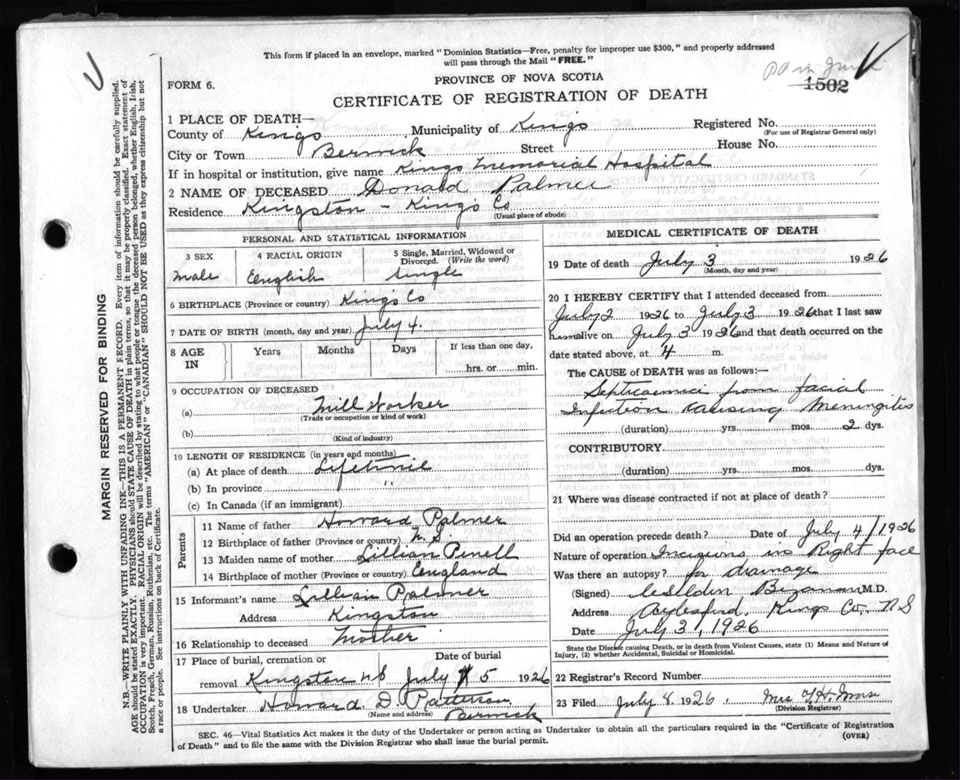 This form if placed in an envelope, marked "Dominion Statistics—Free, penalty for improper use $300," and properly addressed
will pass through the Mail "FREE."
PROVINCE OF NOVA SCOTIA
FORM 6.
1502
CERTIFICATE OF REGISTRATION OF DEATH
1 PLACE OF DEATH—
County of Kings, Municipality of Kings Registered No.
(For use of Registrar General only)
City or Town Berwick Street House No.
If in hospital or institution, give name Kings Memorial Hospital
2 NAME OF DECEASED Donald Palmer
Residence Kingston - Kings Co
(Usual place of abode)
PERSONAL AND STATISTICAL INFORMATION
3 SEX 4 RACIAL ORIGIN 5 Single, Married, Widowed or Divorced. (Write the word)
Male English Single
6 BIRTHPLACE (Province or country) Kings Co
7 DATE OF BIRTH (month, day and year) July 4.
8 AGE IN Years Months Days If less than one day,
hrs. or min.
9 OCCUPATION OF DECEASED
(a) Mill Worker
(Trade or occupation or kind of work)
(b)
(Kind of industry)
10 LENGTH OF RESIDENCE (in years and months)
(a) At place of death Lifetime
(b) In province "
(c) In Canada (if an immigrant)
Parents
11 Name of father Howard Palmer
12 Birthplace of father (Province or country) N.S
13 Maiden name of mother Lillian Pinell
14 Birthplace of mother (Province or country) England
15 Informant's name Lillian Palmer
Address Kingston
16 Relationship to deceased Mother
17 Place of burial, cremation or removal Kingston NS Date of burial July 5 1926
18 Undertaker Howard D. Patterson
(Name and address) Berwick
MEDICAL CERTIFICATE OF DEATH
19 Date of death July 3 1926
(Month, day and year)
20 I HEREBY CERTIFY that I attended deceased from
July 2 1926 to July 3 1926 that I last saw
him alive on July 3 1926 and that death occurred on the
date stated above, at 4 m.
The CAUSE of DEATH was as follows:—
Septicaemia from facial
Infection causing Meningitis
(duration) yrs. mos. 2 dys.
CONTRIBUTORY.
(duration) yrs. mos. dys.
21 Where was disease contracted if not at place of death?
Did an operation precede death? Date of July 4/1926
Nature of operation Incisions in Right face
Was there an autopsy? for drainage
(Signed) M.D.
Address Aylesford. Kings Co. N S
Date July 3, 1926
State the Disease causing Death, or in death from Violent Causes, state (1) Means and Nature of
Injury, (2) whether Accidental, Suicidal or Homicidal.
22 Registrar's Record Number
23 Filed July 8 1926. Mrs H. Morse
(Division Registrar)
SEC. 46—Vital Statistics Act makes it the duty of the Undertaker or person acting as Undertaker to obtain all the particulars required in the "Certificate of Registration
of Death" and to file the same with the Division Registrar who shall issue the burial permit.
(OVER)
MARGIN RESERVED FOR BINDING
N.B.—WRITE PLAINLY WITH UNFADING INK—THIS IS A PERMANENT RECORD. Every item of information should be carefully supplied.
AGE should be stated EXACTLY. PHYSICIANS should STATE CAUSE OF DEATH in plain terms, so that it may be properly classified. Exact statement of
OCCUPATION is very important. RACIAL ORIGIN will be described by stating to what people or tongue the deceased person belonged, whether English, Irish,
Scotch, French, German, Russian, Ruthenian, etc. The terms "AMERICAN" or "CANADIAN" SHOULD NOT BE USED as they express citizenship but not
a race or people. See instructions on back of Certificate.